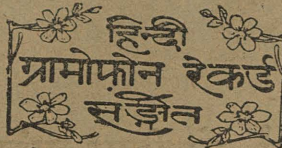 हिन्दी
ग्रामोफ़ोन रेकर्ड
सङ्गीत